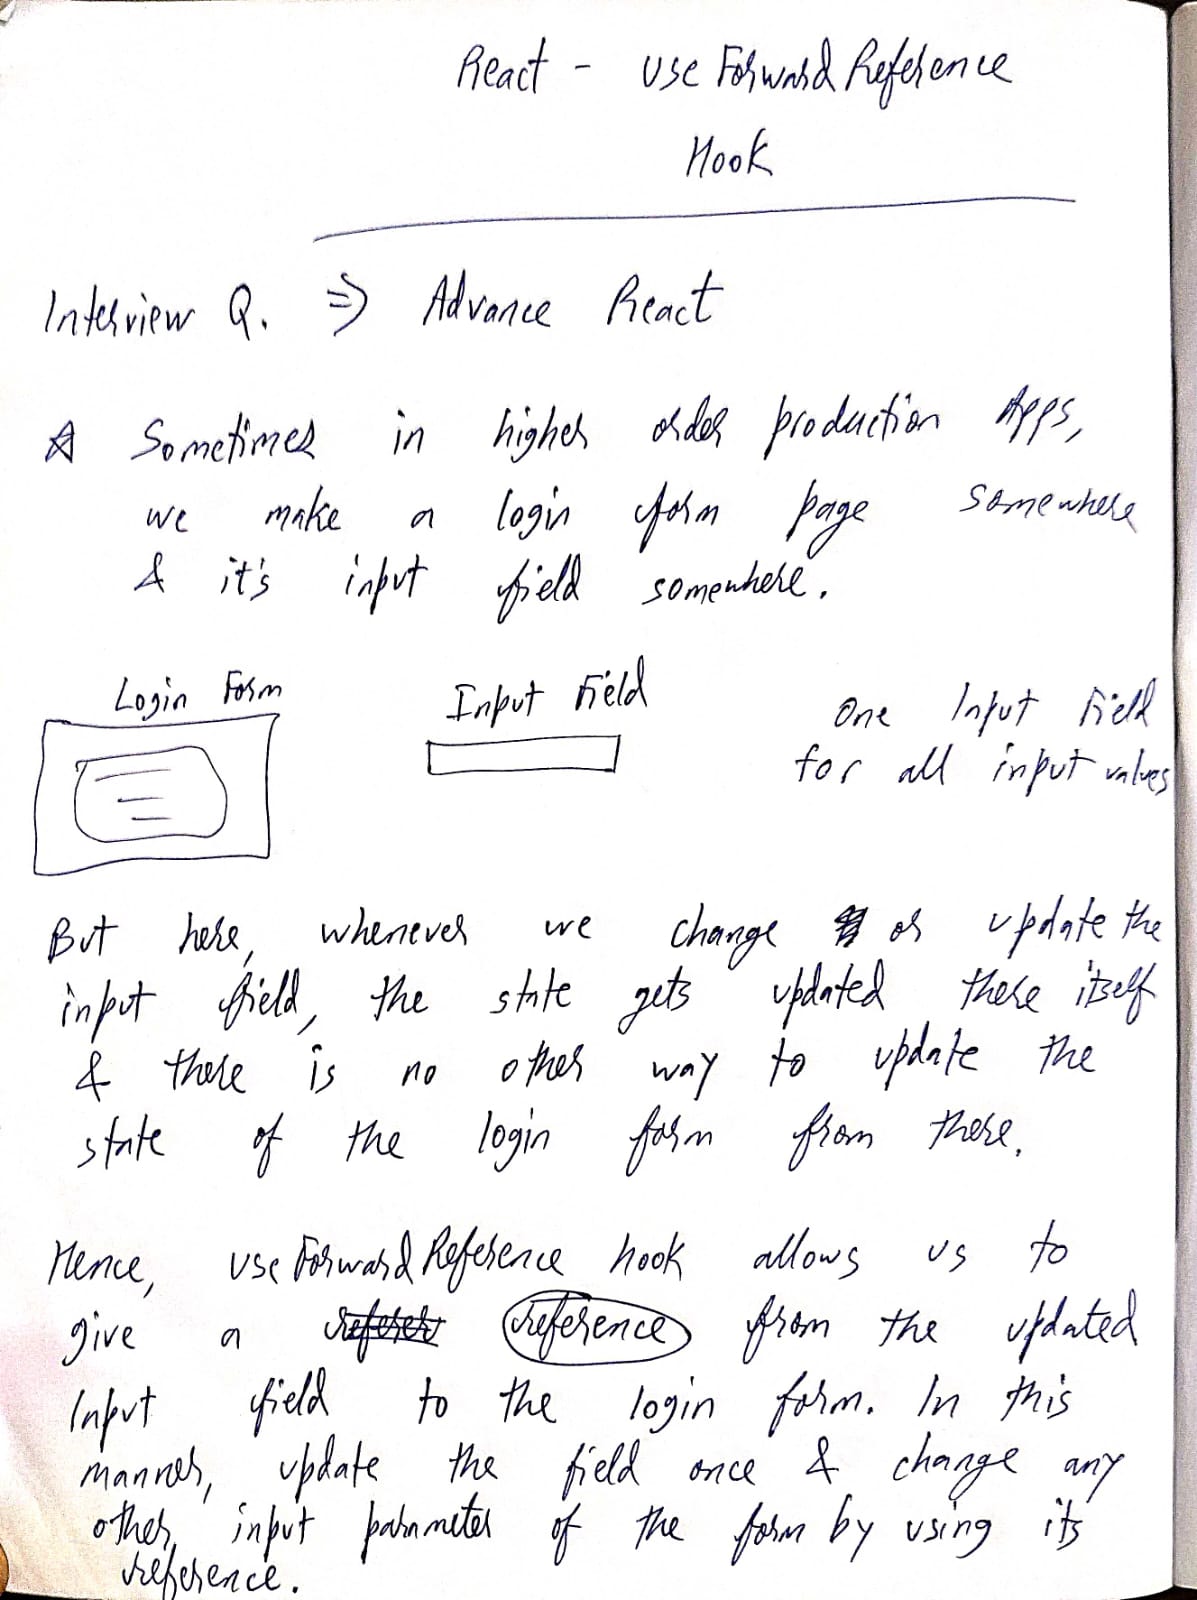 React - use Forward Reference
Hook
Interview Q. ⇒ Advance React
☆ Sometimes in higher order production Apps,
we make a login form page somewhere
& it's input field somewhere.
Login Form
Input Field
One Input Field
for all input values
But here, whenever we change or update the
input field, the state gets updated there itself
& there is no other way to update the
state of the login form from there.
Hence, use Forward Reference hook allows us to
give a reference from the updated
Input field to the login form. In this
manner, update the field once & change any
other input parameter of the form by using its
reference.